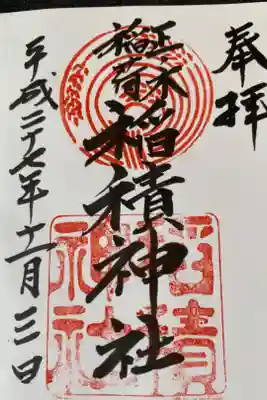 奉拝
正木
稲荷
稲積神社
平成二十七年十一月三日
稲積
神社